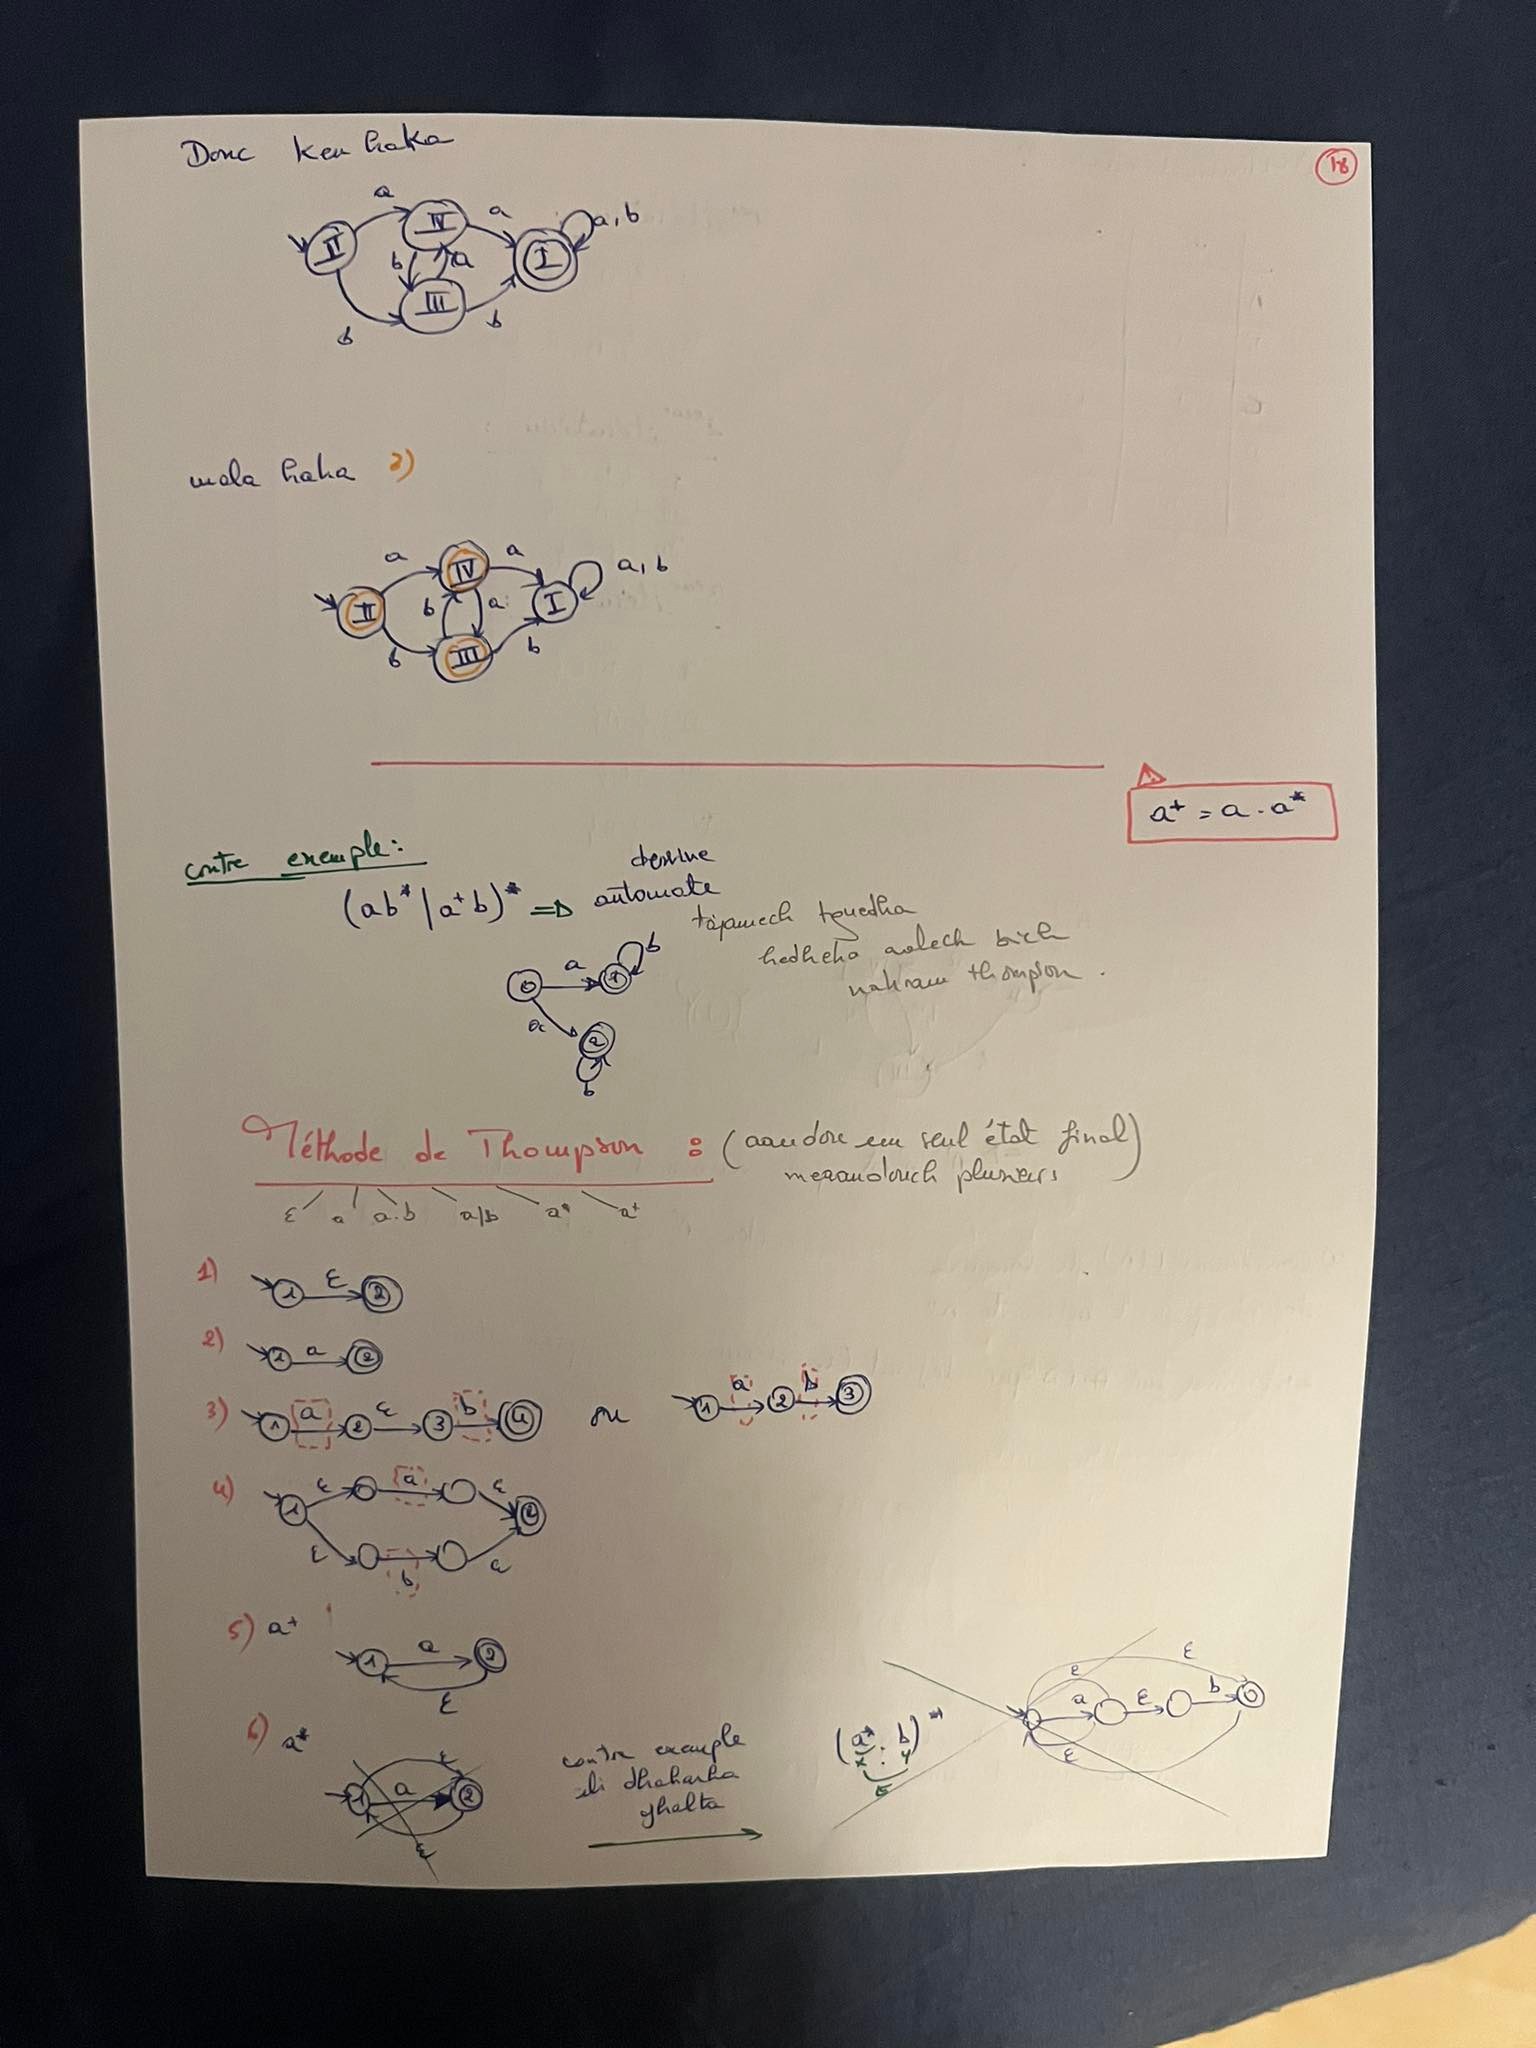 Donc ken haka
18
a
IV
a
a, b
II
I
b
a
III
b
b
mala haka 2)
a
IV
a
a, b
II
b
a
I
b
III
b
a+ = a . a*
contre exemple :
dessine
(ab* | a+b)* => automate
tajamech
thompson .
b
a
0
1
a
2
b
Méthode de Thompson : (aandou un seul état final)
mezandouch plusieurs
ε a a.b a/b a* a+
1) 1 ε 2
2) 1 a 2
3) 1 a 2 ε 3 b 4 ou 1 a 2 b 3
4) ε a ε
1 2
ε b ε
5) a+
1 a 2
ε
6) a*
ε
1 a 2
ε
contre exemple
eli dhaharha
ghalta
(a* . b)*
x y
ε
ε
a ε b
ε